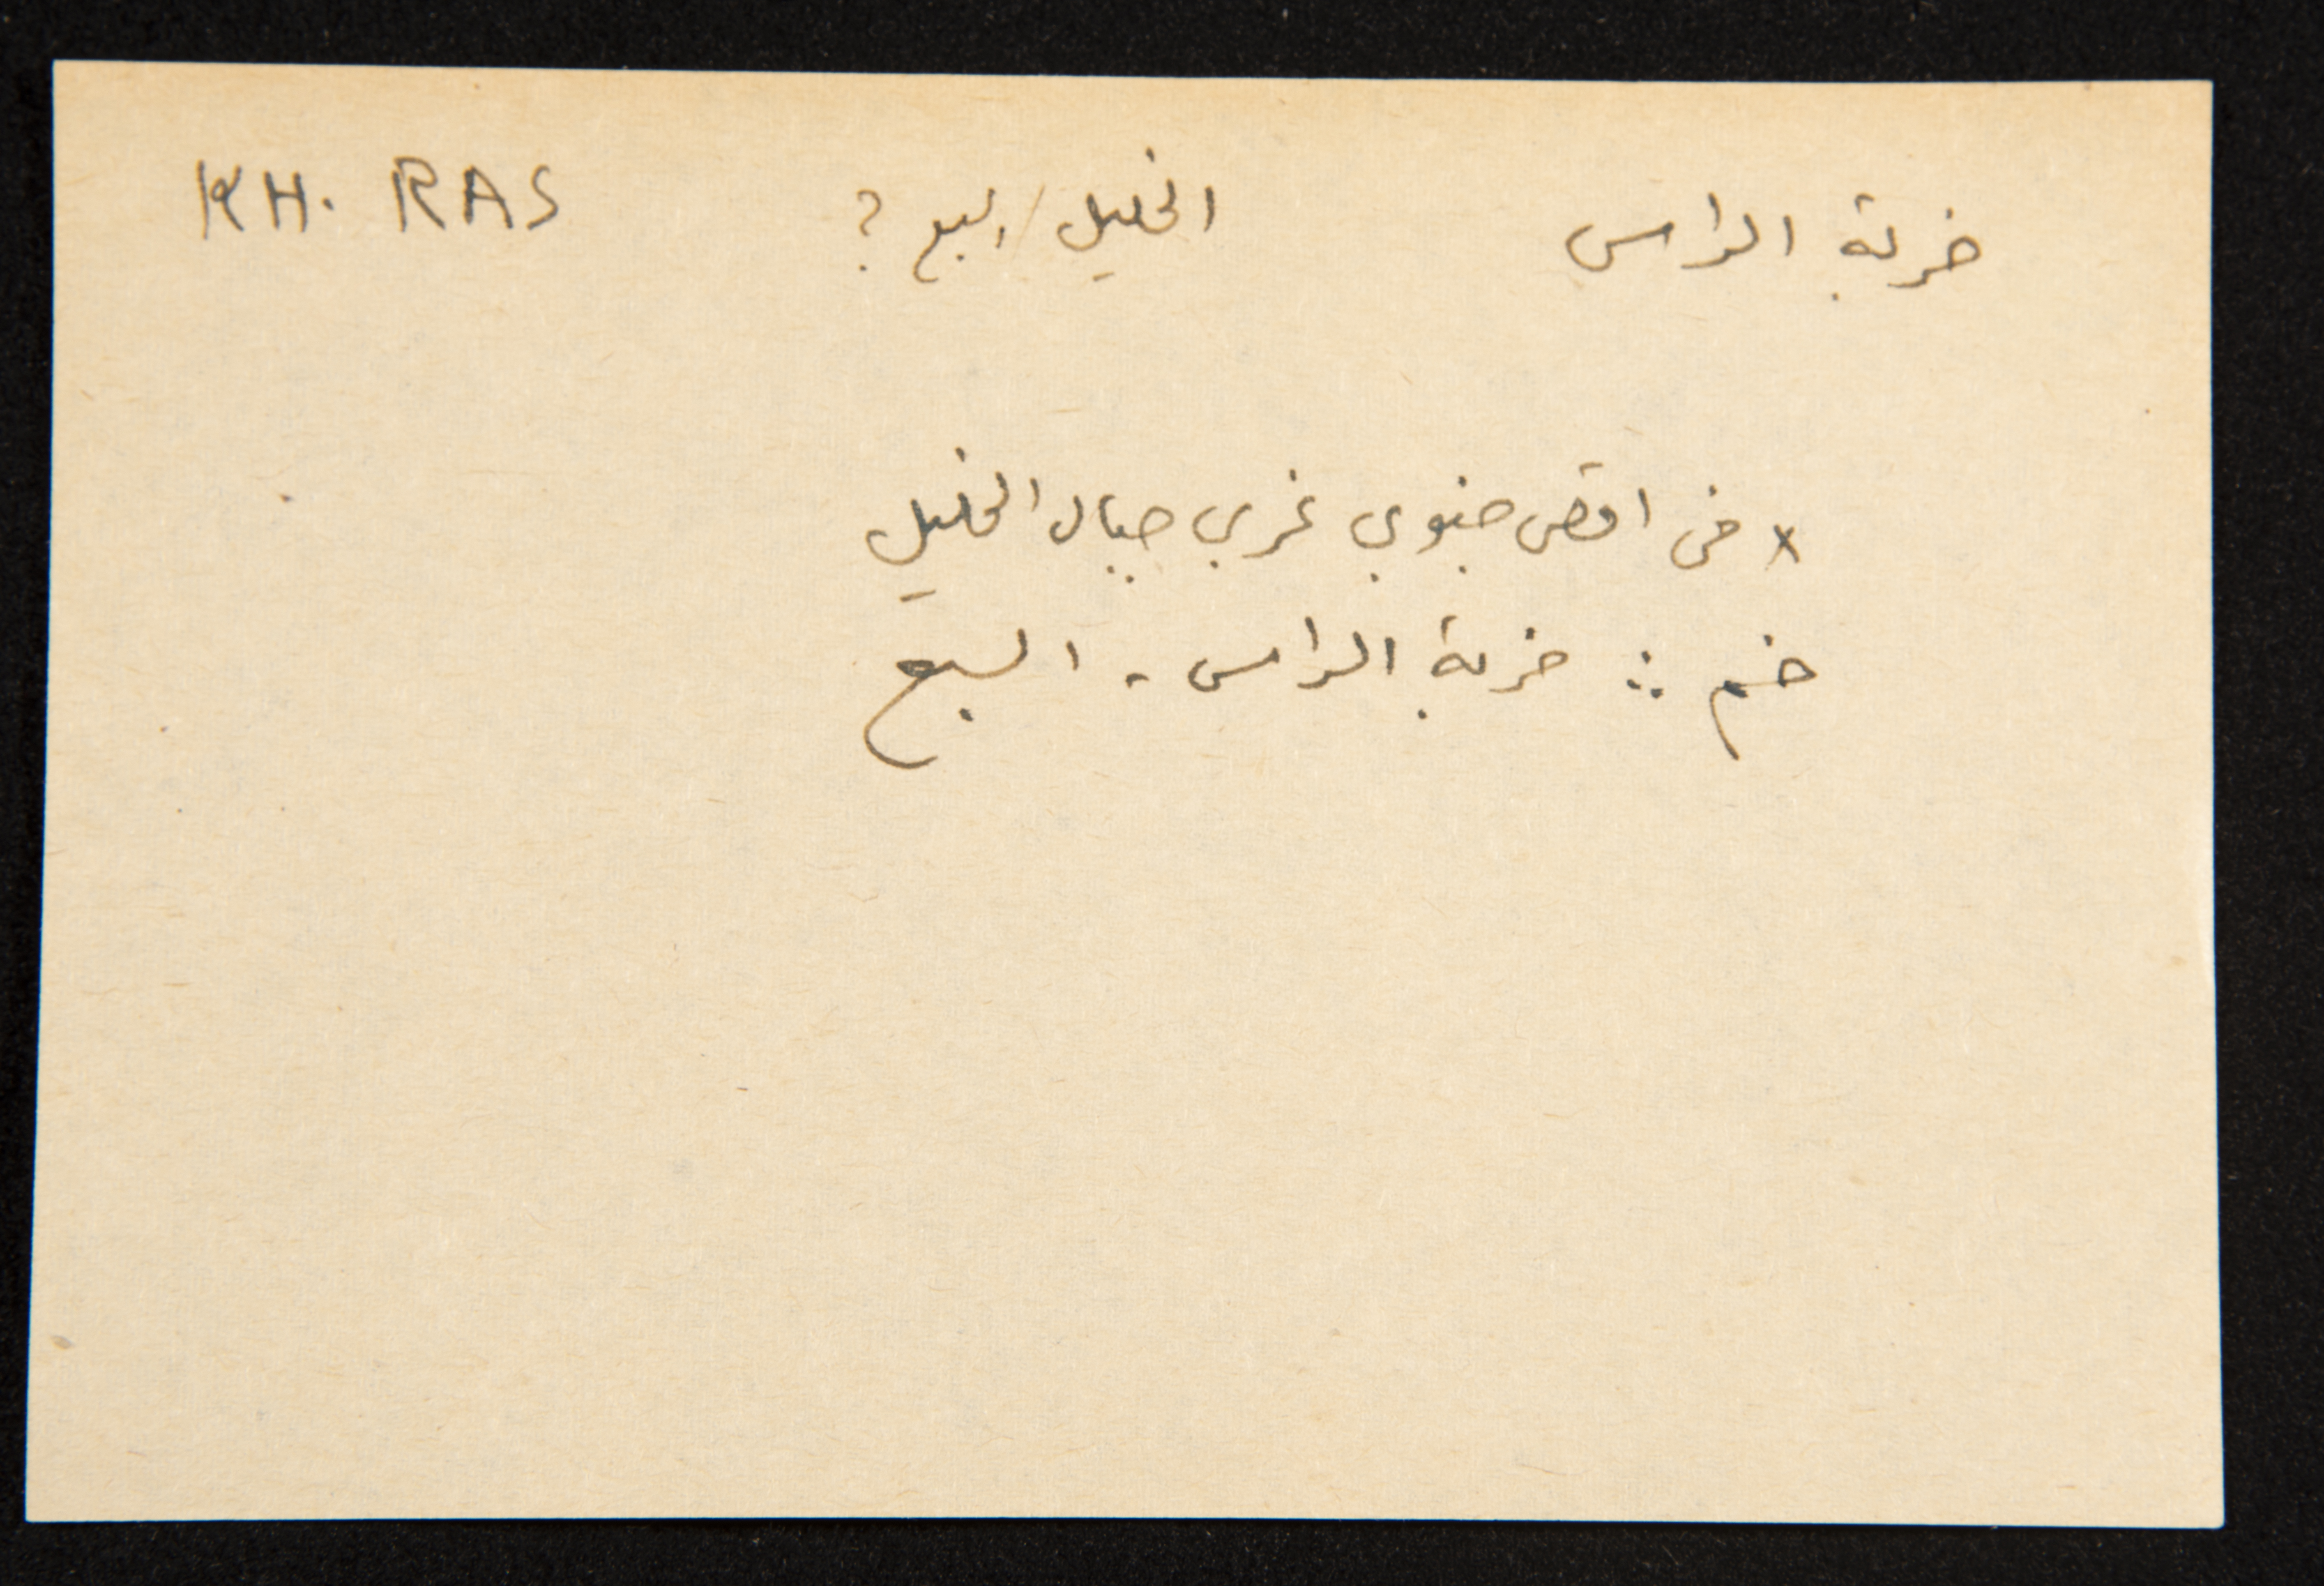 خربة الراس الخليل/السبع ? KH. RAS
x في اقصى جنوبي غربي جبال الخليل
خم :: خربة الراس - السبع